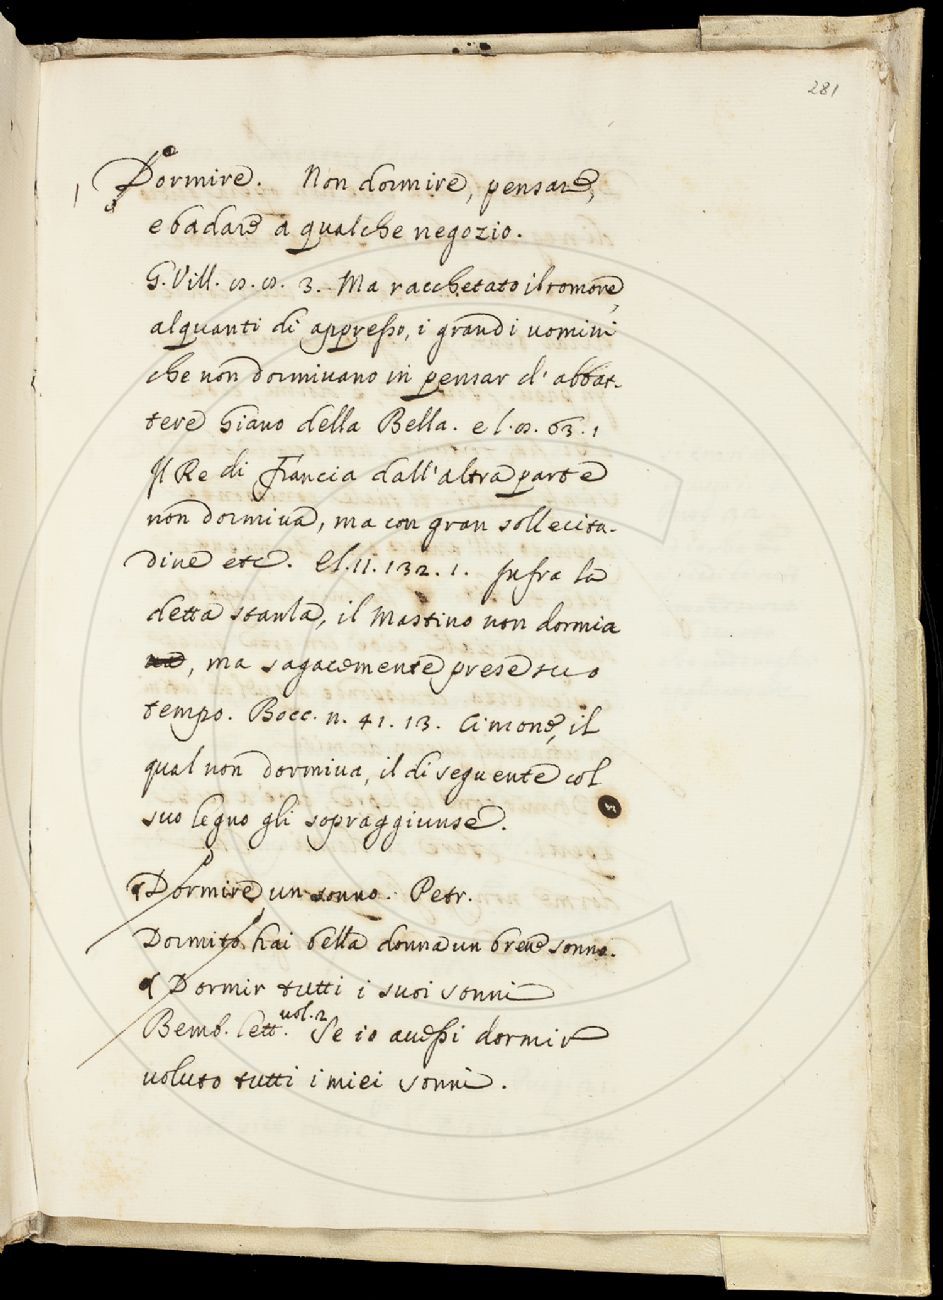 281
Dormire. Non dormire, pensare,
e badare a qualche negozio.
G. Vill. 8. 8. 3. Ma racchetato il romore
alquanti di appresso, i grandi uomini
che non dormivano in pensar d'abbat-
tere Giano della Bella. e l. 8. 63. 1
Il Re di Francia dall'altra parte
non dormiva, ma con gran sollecitu-
dine etc. El. 11. 132. 1. Infra la
detta stanza, il Mastino non dormia
, ma sagacemente prese suo
tempo. Bocc. n. 41. 13. Cimone, il
qual non dormiva, il di seguente col
suo legno gli sopraggiunse.
Dormire un sonno. Petr.
Dormito hai bella donna un breve sonno.
Dormir tutti i suoi sonni
Bemb. lett. vol. 2 Se io avessi dormir
voluto tutti i miei sonni.